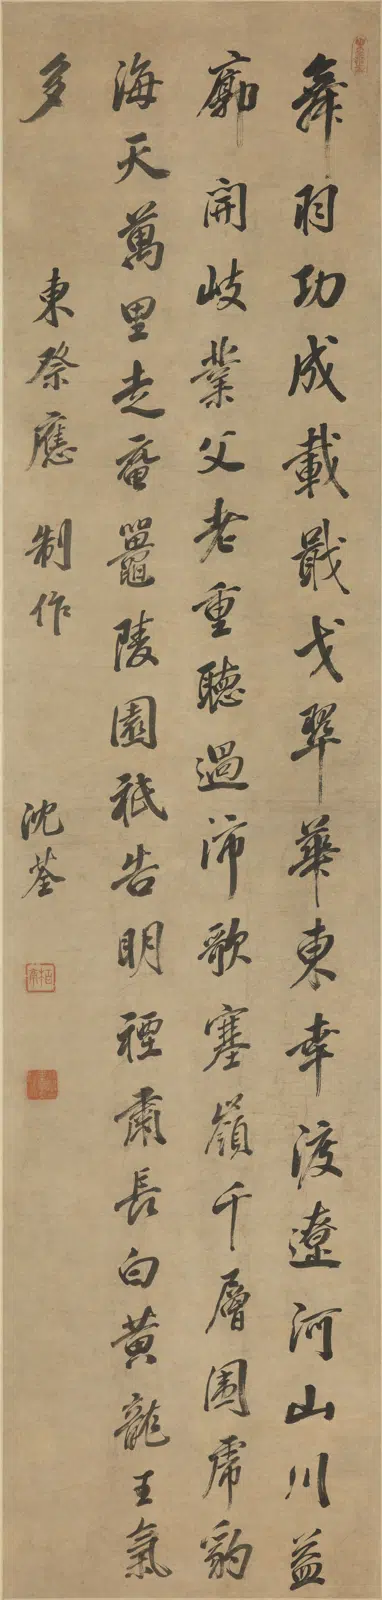 舞羽功成載戢戈翠華東幸渡遼河山川益
廓開岐業父老重聽過沛歌塞嶺千層圍虎豹
海天萬里走黿鼉陵園祗告明禋肅長白黃龍王氣
多
東祭應制作
沈荃